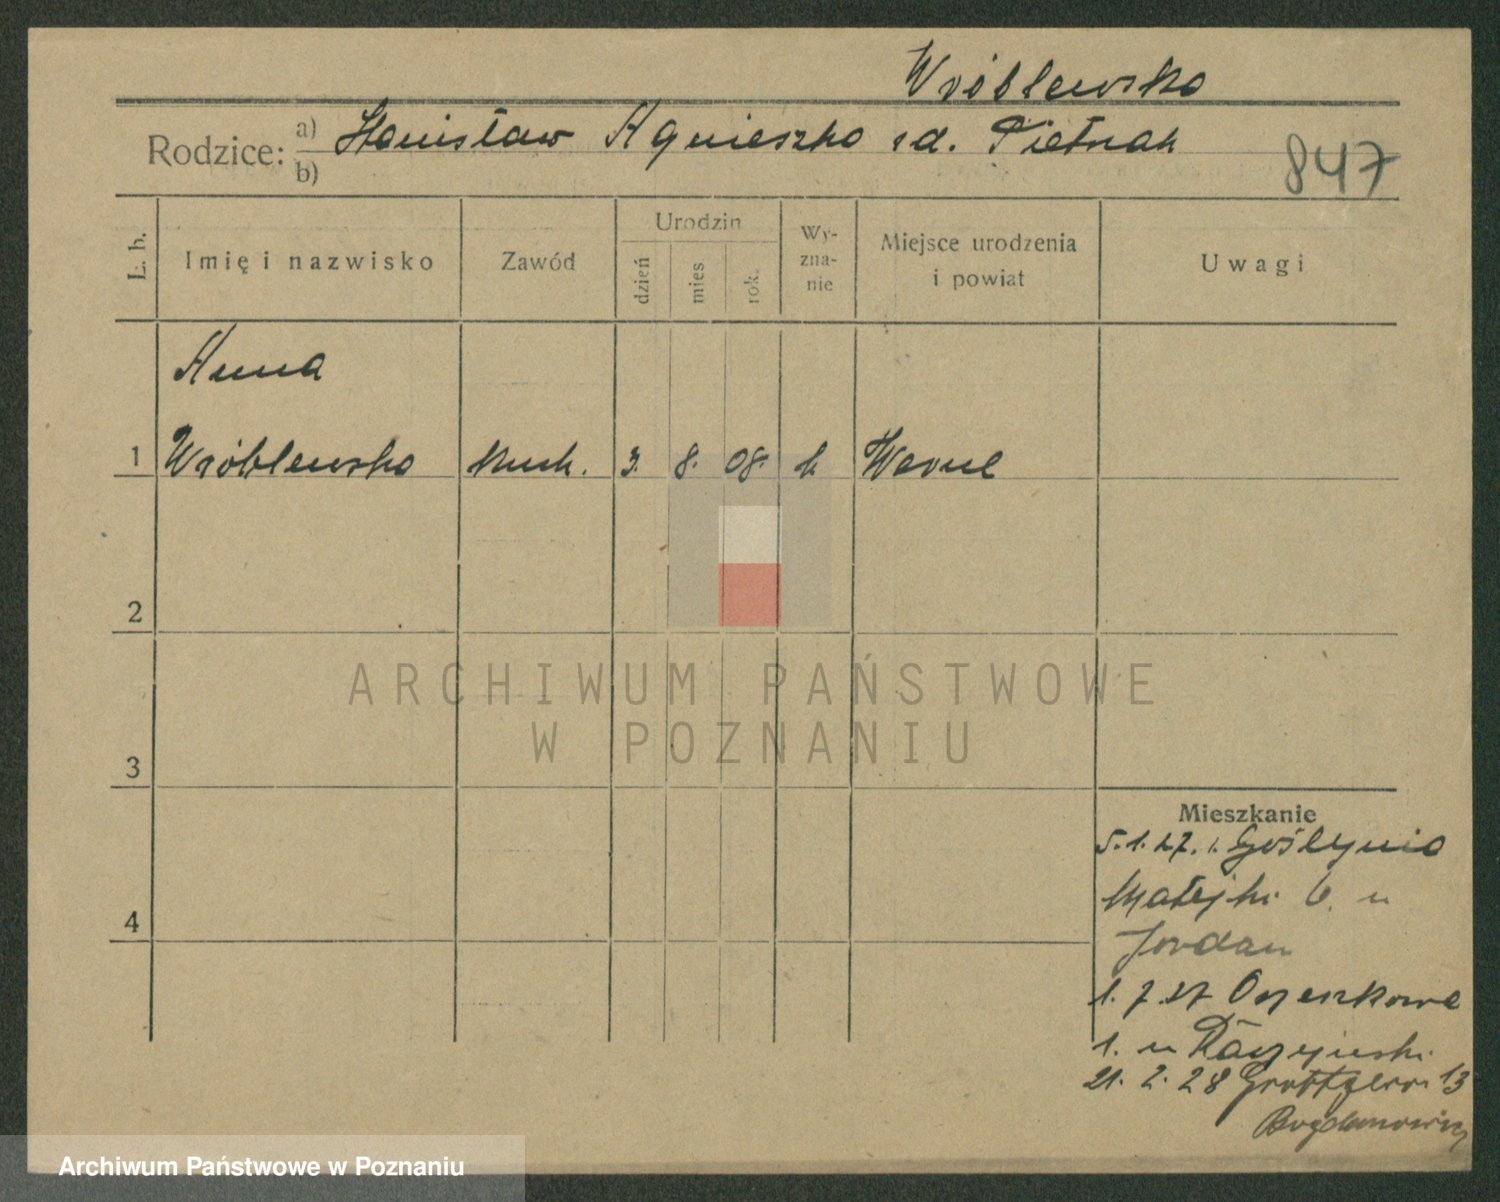 Wróblewska
Rodzice: a) Stanisław Agnieszka zd. Pietrzak
b)
847
L. b.
Imię i nazwisko
Zawód
Urodzin
dzień
mies
rok.
Wy-
zna-
nie
Miejsce urodzenia
i powiat
Uwagi
Anna
1 Wróblewska kuch. 3. 8. 08. k. Warne
2
3
4
Mieszkanie
5.1.27. z Goślynia
Matejki 6. u
Jordan
1. 7 27 Orzeszkowa
1. u Raczyński.
21. 2. 28 Grottgera 13
Bogdanowicz
ARCHIWUM PAŃSTWOWE
W POZNANIU
Archiwum Państwowe w Poznaniu